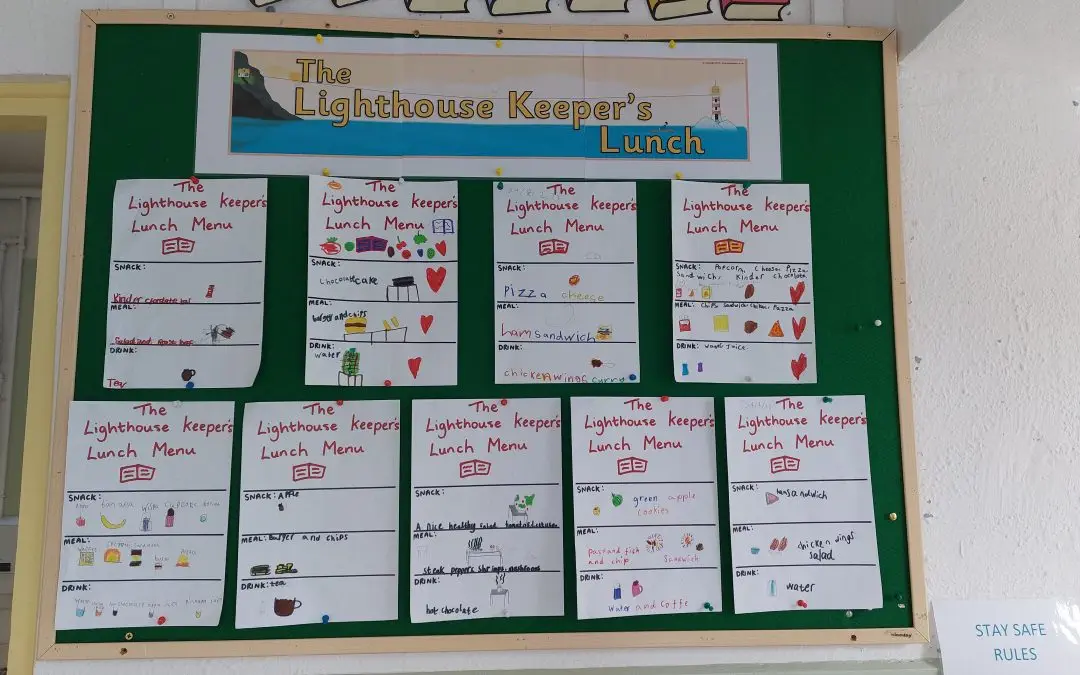 The
Lighthouse Keeper's
Lunch
The
Lighthouse Keeper's
Lunch Menu
SNACK:
Kinder
MEAL:
DRINK:
Tea
The
Lighthouse Keeper's
Lunch Menu
SNACK:
chocolate cake
MEAL:
burger and chips
DRINK:
water
The
Lighthouse Keeper's
Lunch Menu
SNACK:
Pizza cheese
MEAL:
ham sandwich
DRINK:
chicken wings curry
The
Lighthouse Keeper's
Lunch Menu
SNACK: Popcorn, Cheese, Pizza
Sandwich, Kinder chocolate
MEAL: chips Sandwich Pizza
DRINK: juice
The
Lighthouse Keeper's
Lunch Menu
SNACK:
banana
MEAL:
DRINK:
The
Lighthouse Keeper's
Lunch Menu
SNACK: Apple
MEAL: Burger and chips
DRINK: tea
The
Lighthouse Keeper's
Lunch Menu
SNACK:
A nice healthy salad
MEAL:
steak peppers shrimps mushrooms
DRINK:
hot chocolate
The
Lighthouse Keeper's
Lunch Menu
SNACK:
green apple
cookies
MEAL:
and fish
and chip
Sandwich
DRINK:
Water and Coffe
The
Lighthouse Keeper's
Lunch Menu
SNACK:
MEAL:
chicken wings
salad
DRINK:
water
STAY SAFE
RULES